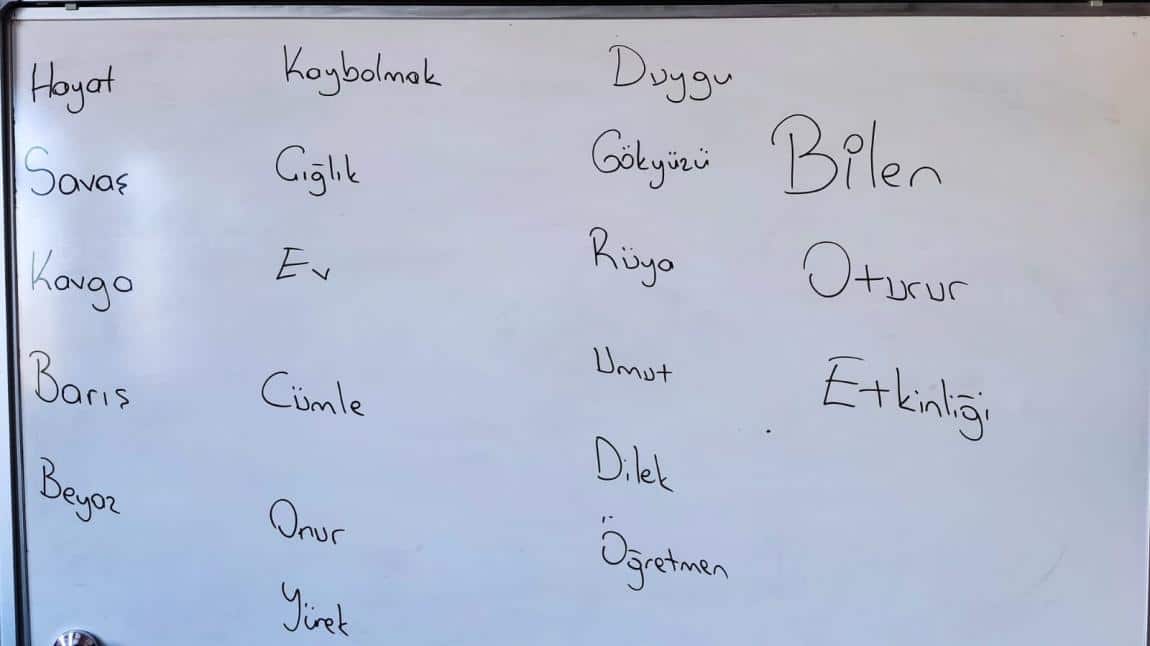 Hayat
Savaş
Kavga
Barış
Beyaz
Kaybolmak
Çığlık
Ev
Cümle
Onur
Yürek
Duygu
Gökyüzü
Rüya
Umut
Dilek
Öğretmen
Bilen
Oturur
Etkinliği